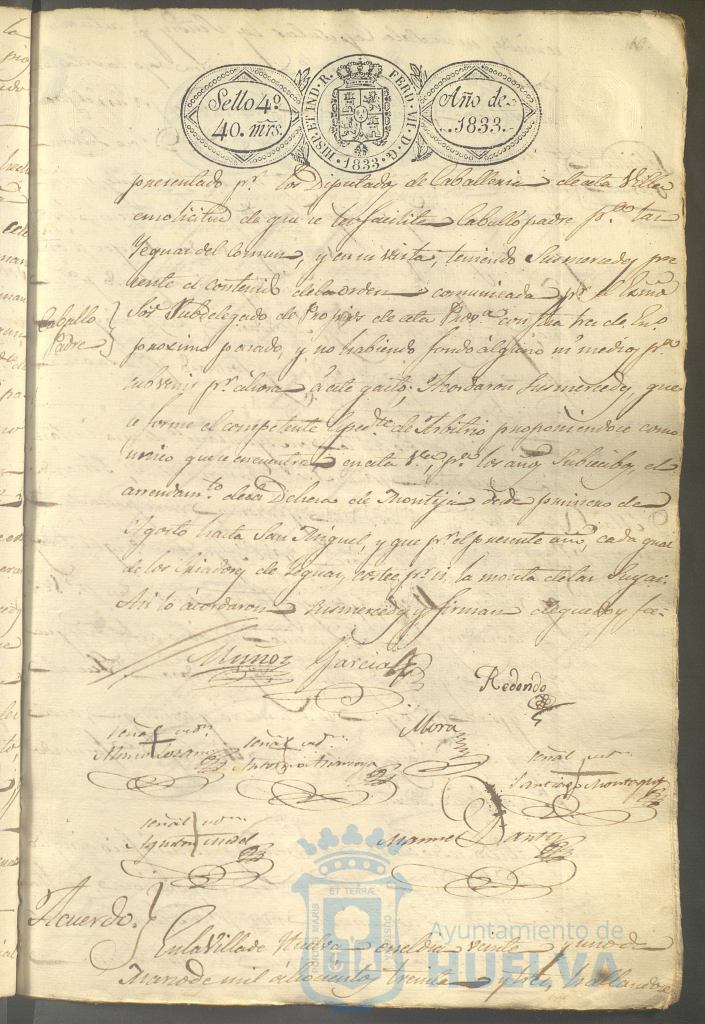 Sello 4º
40. mrs.
HISP. ET IND. R. FERD. VII. D. G.
1833.
Año de
1833.
presentado pr. los Diputados de Caballeria de esta Villa
en solicitud de que se les facilite Caballo padre pa. las
Yeguas del Comun, y en su vista, teniendo Sus mercedes pre
sente el contenido de la orden comunicada pr. el Exmo
Sor. Subdelegado de Propios de esta Prova. con fha tres de En.o
Caballo
Padre
proximo pasado, y no habiendo fondo alguno ni medios pa.
subvenir pr. ahora á este gasto; Acordaron Sus mercedes que
se forme el competente Espedte. de Arbitrio proponiendose como
unico que se encuentra en esta Va., pa. los años Subcesibos, el
arrendamto. de la Dehesa de Montija desde primero de
Agosto hasta San Miguel, y que pr. el presente año, cada qual
de los Criadores de Yeguas, costee pr. si, la monta de las Suyas.
Asi lo acordaron Sus mercedes y firman de que doy fee.
Muñoz Garcia
Redondo
Mora
señal de
señal de
señal de
Santiago
señal de
Agustin
Manuel
Acuerdo.
En la Villa de Huelva en el dia veinte y uno de
Marzo de mil ochocientos treinta y tres, hallandose
ET TERRÆ
MARIS
Ayuntamiento de
HUELVA